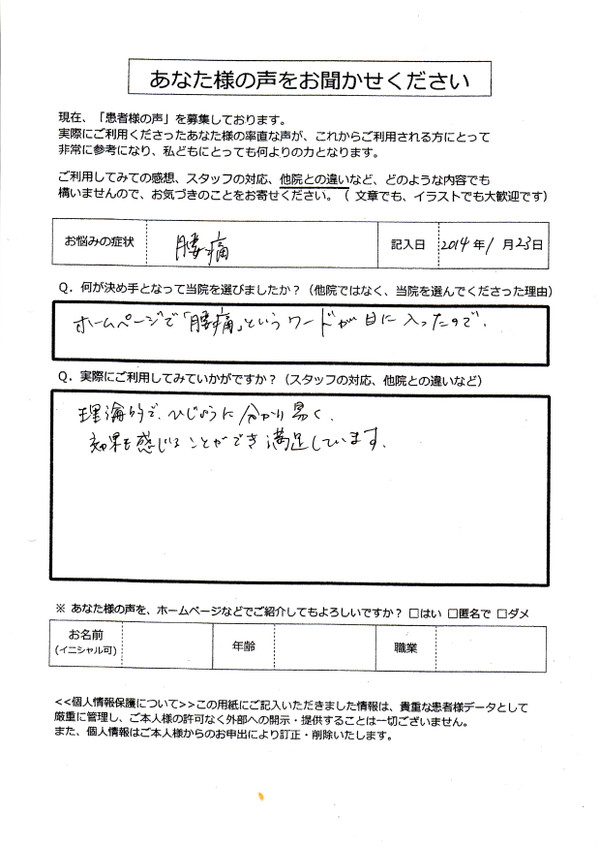 あなた様の声をお聞かせください
現在、「患者様の声」を募集しております。
実際にご利用くださったあなた様の率直な声が、これからご利用される方にとって
非常に参考になり、私どもにとっても何よりの力となります。
ご利用してみての感想、スタッフの対応、他院との違いなど、どのような内容でも
構いませんので、お気づきのことをお寄せください。（ 文章でも、イラストでも大歓迎です）
お悩みの症状 腰痛 記入日 2014年1月23日
Q．何が決め手となって当院を選びましたか？（他院ではなく、当院を選んでくださった理由）
ホームページで「腰痛」というワードが目に入ったので．
Q．実際にご利用してみていかがですか？（スタッフの対応、他院との違いなど）
理論的で、ひじょうに分かり易く、
効果も感じることができ満足しています．
※ あなた様の声を、ホームページなどでご紹介してもよろしいですか？ □はい □匿名で □ダメ
お名前 年齢 職業
(イニシャル可)
<<個人情報保護について>>この用紙にご記入いただきました情報は、貴重な患者様データとして
厳重に管理し、ご本人様の許可なく外部への開示・提供することは一切ございません。
また、個人情報はご本人様からのお申出により訂正・削除いたします。